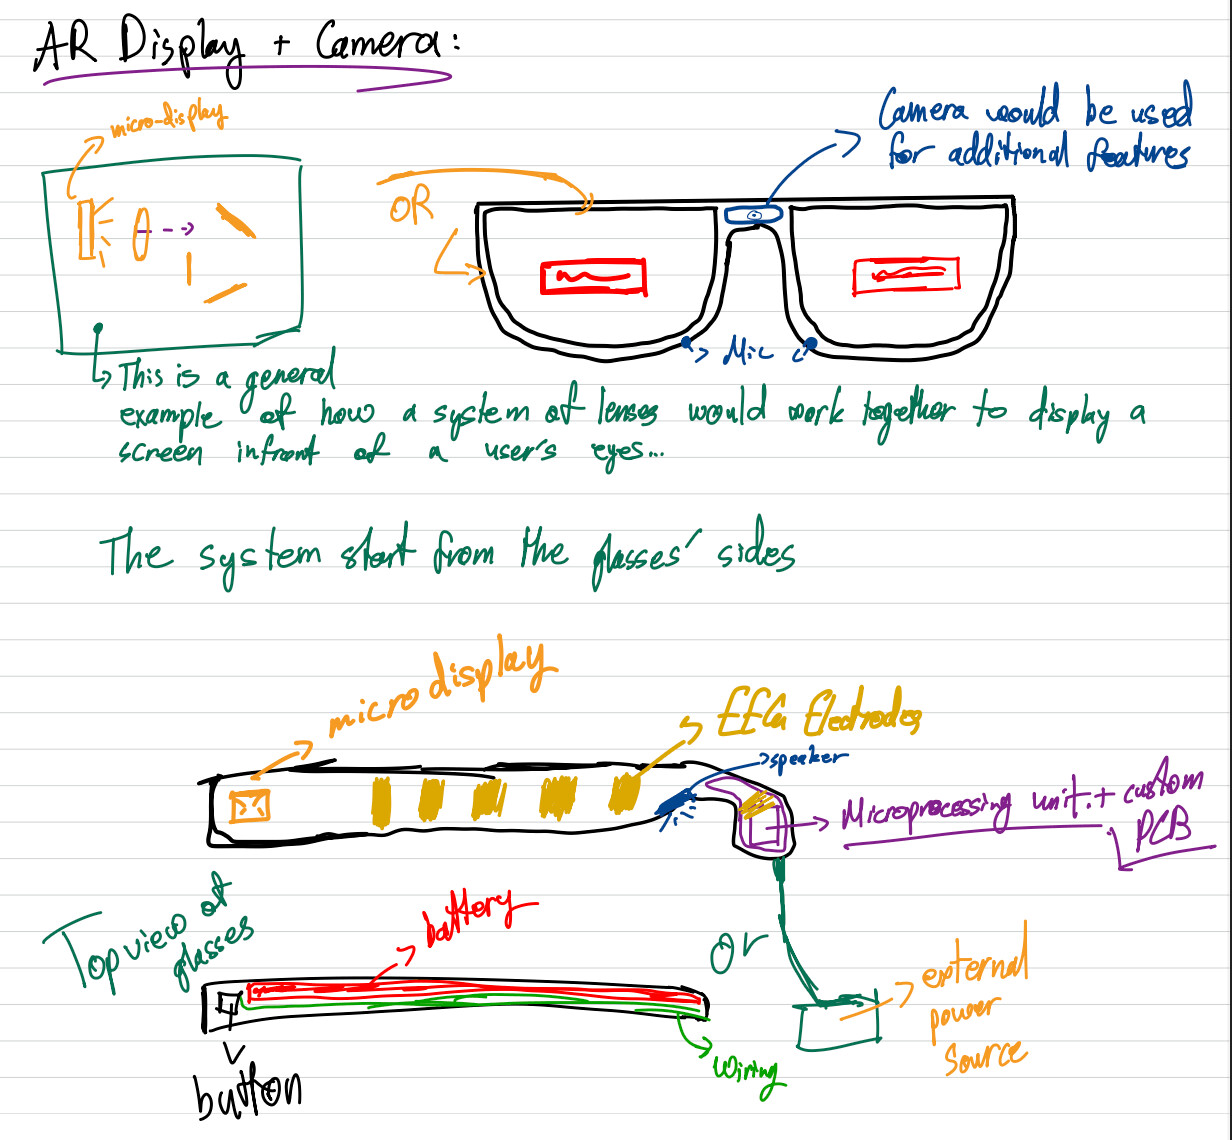 AR Display + Camera:
micro-display
Camera would be used
for additional features
OR
Mic
This is a general
example of how a system of lenses would work together to display a
screen infront of a user's eyes...
The system start from the glasses' sides
micro display
EEG Electrodes
speaker
Microprocessing unit + custom
PCB
Top view of
glasses
battery
or
external
power
source
wiring
button